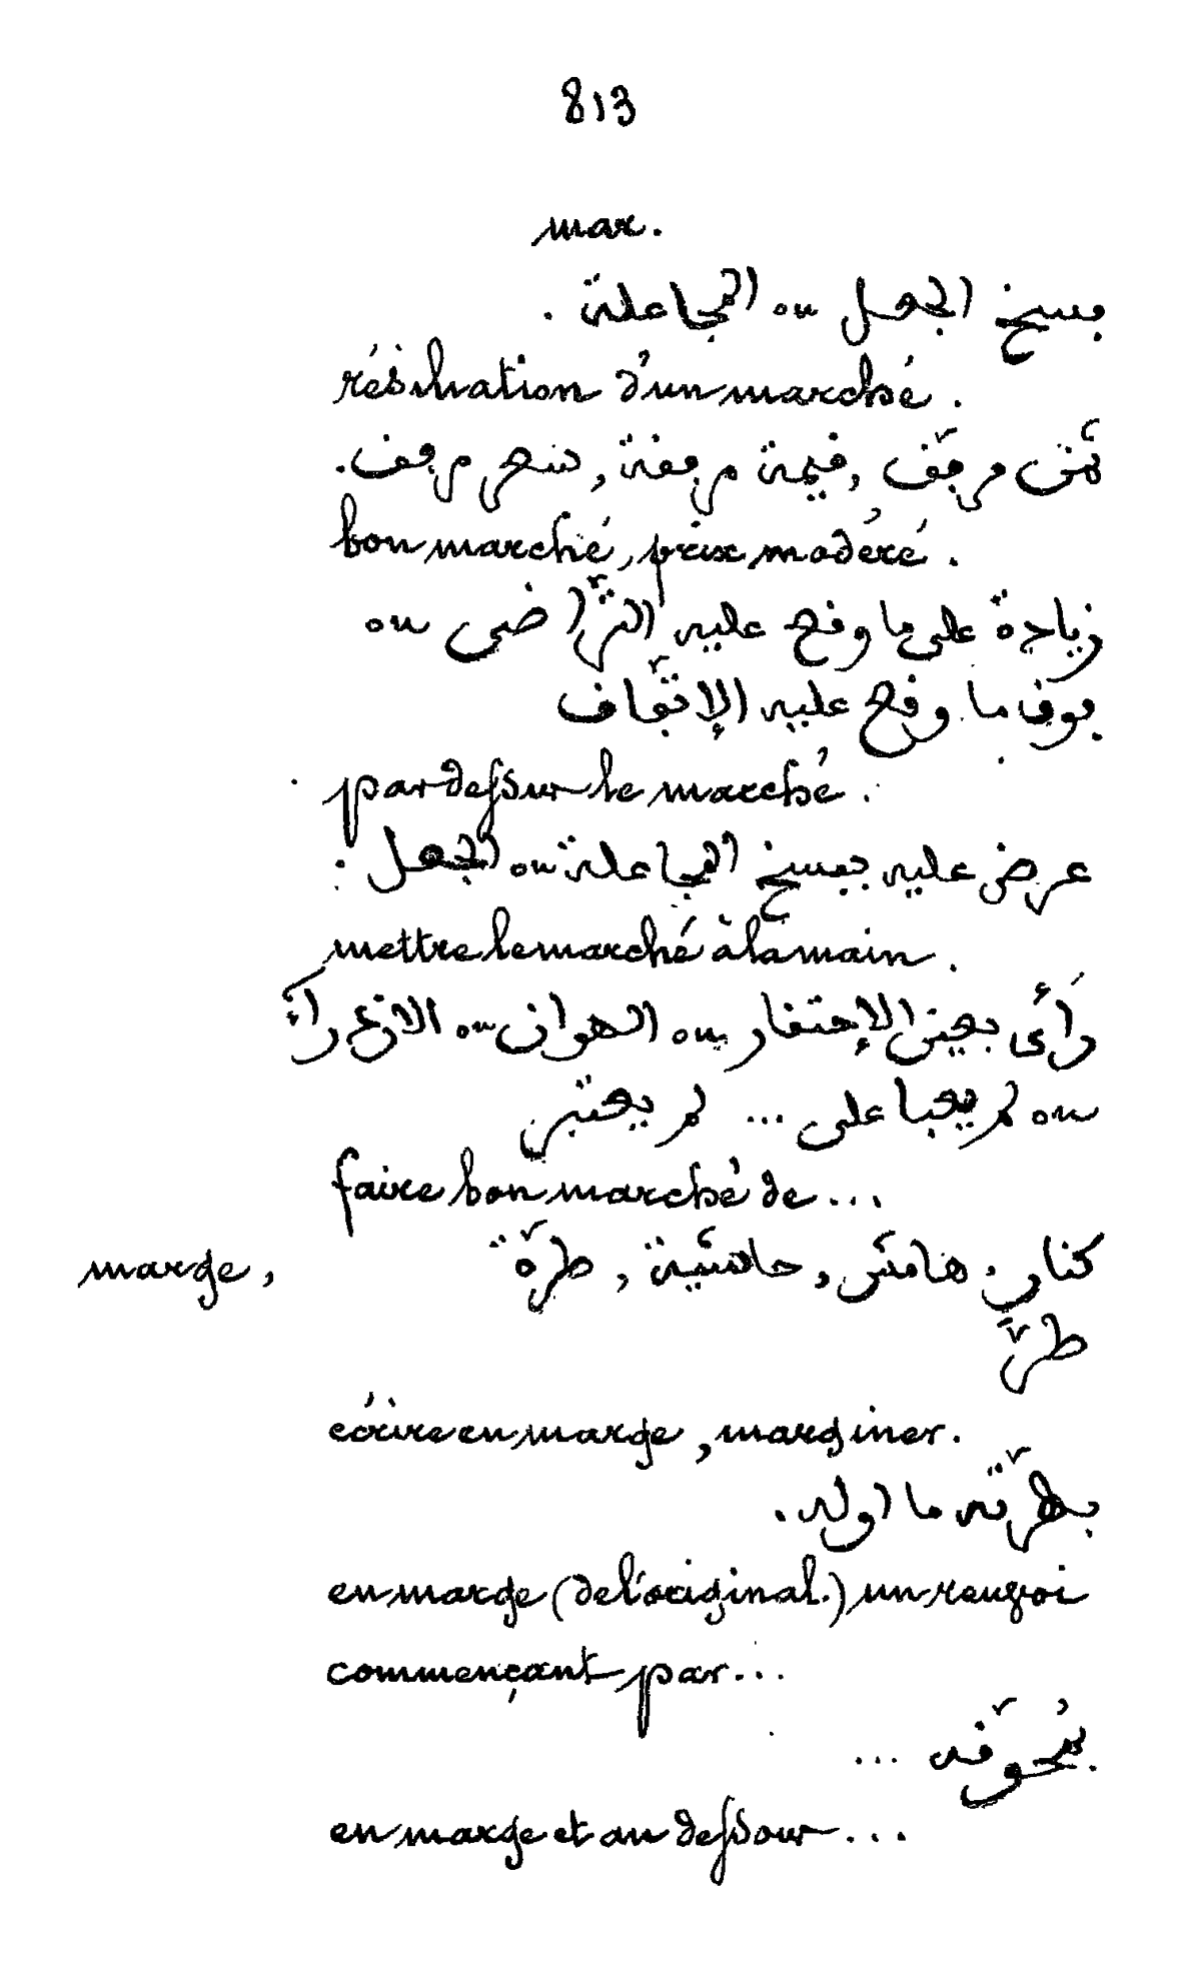 813
mar.
فسخ الجعل ou المجاعلة .
résiliation d'un marché.
ثمن مرفّق , قيمة مرفقة , سعر مرفق.
bon marché, prix modéré.
زيادة على ما وقع عليه التّراضى ou
فوق ما وقع عليه الإتّفاق
par dessur le marché.
عرض عليه بفسخ المجاعلة ou الجعل :
mettre le marché à la main.
رَأَى بعين الإحتقار ou الهوان ou الازدراء
ou لم يعبا على ... لم يعتبر
faire bon marché de...
marge, كنار , هامش , حاشية , طرّة
طرّ
écrire en marge, marginer.
بطرّته ما اوله .
en marge (de l'original.) un renvoi
commençant par...
en marge et au dessour...